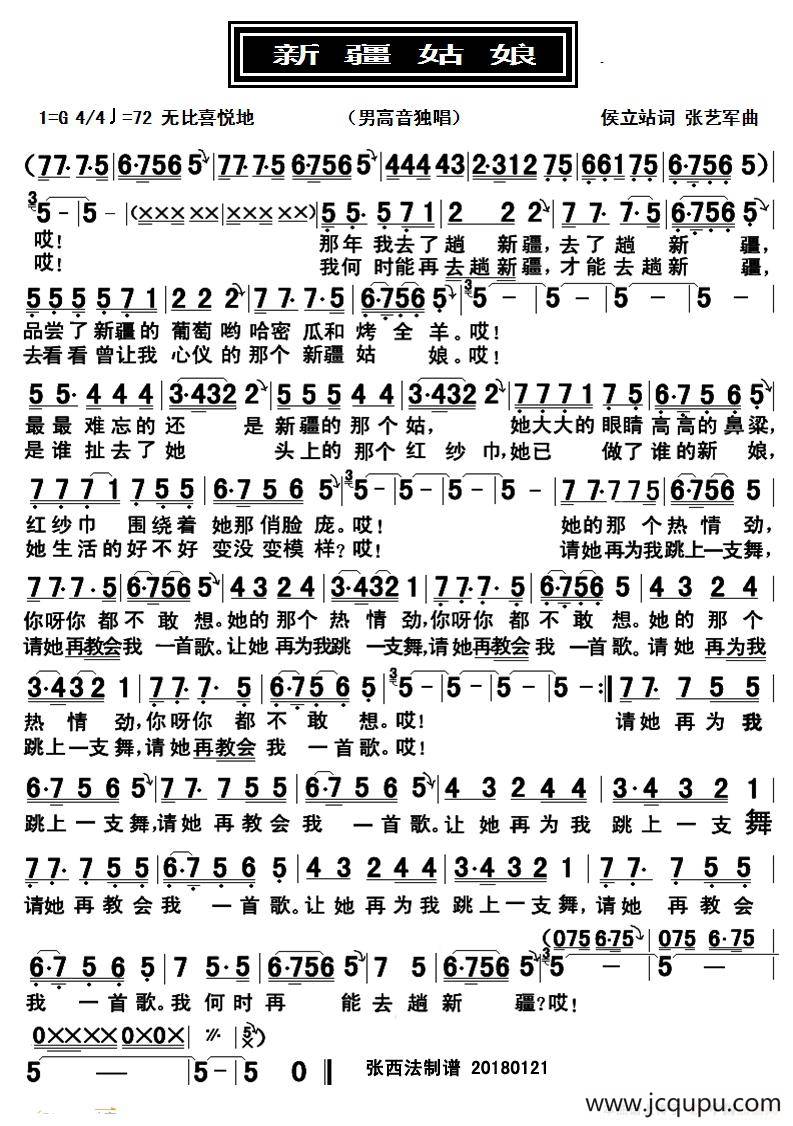 新疆姑娘
1=G 4/4♩=72 无比喜悦地 （男高音独唱） 侯立站词 张艺军曲
(77·75|6·7565|77·75|6·7565|44443|2·31275|66175|6·7565)
3 5－|5－|(×××××|×××××)|55·571|2 2 2|77·7·5|6·7565
哎！ 那年我去了趟新疆，去了趟新疆，
哎！ 我何时能再去趟新疆，才能去趟新疆，
555571|222|77·7·5|6·7565|3 5－|5－|5－
品尝了新疆的葡萄哟哈密瓜和烤全羊。哎！
去看看曾让我心仪的那个新疆姑娘。哎！
55·444|3·4322|555444|3·4322|7771755|6·7565
最最难忘的还是新疆的那个姑，她大大的眼睛高高的鼻梁
是谁扯去了她头上的那个红纱巾,她已做了谁的新娘，
7771755|6·7565|3 5－|5－|5－|77·775|6·7565
红纱巾围绕着她那俏脸庞。哎！ 她的那个热情劲，
她生活的好不好变没变模样？哎！ 请她再为我跳上一支舞，
77·7·5|6·7565|4324|3·4321|77·7·5|6·7565|4324
你呀你都不敢想。她的那个热情劲,你呀你都不敢想。她的那个
请她再教会我一首歌。让她再为我跳上一支舞,请她再教会我一首歌。请她再为我
3·4321|77·7·5|6·7565|3 5－|5－|5－:‖77·755
热情劲,你呀你都不敢想。哎！ 请她再为我
跳上一支舞,请她再教会我一首歌。哎！
6·7565|77·755|6·7565|43244|3·4321
跳上一支舞,请她再教会我一首歌。让她再为我跳上一支舞
77·755|6·7565|43244|3·4321|77·755
请她再教会我一首歌。让她再为我跳上一支舞,请她再教会
(0756·75|0756·75
6·7565|7 55·|6·7565|75·|6·7565|3 5－|5－
我一首歌。我何时再能去趟新疆？哎！
0××××|0×0×|𝄎|5×)
5－|5－|5－|50‖
张西法制谱 20180121
www.jcqupu.com